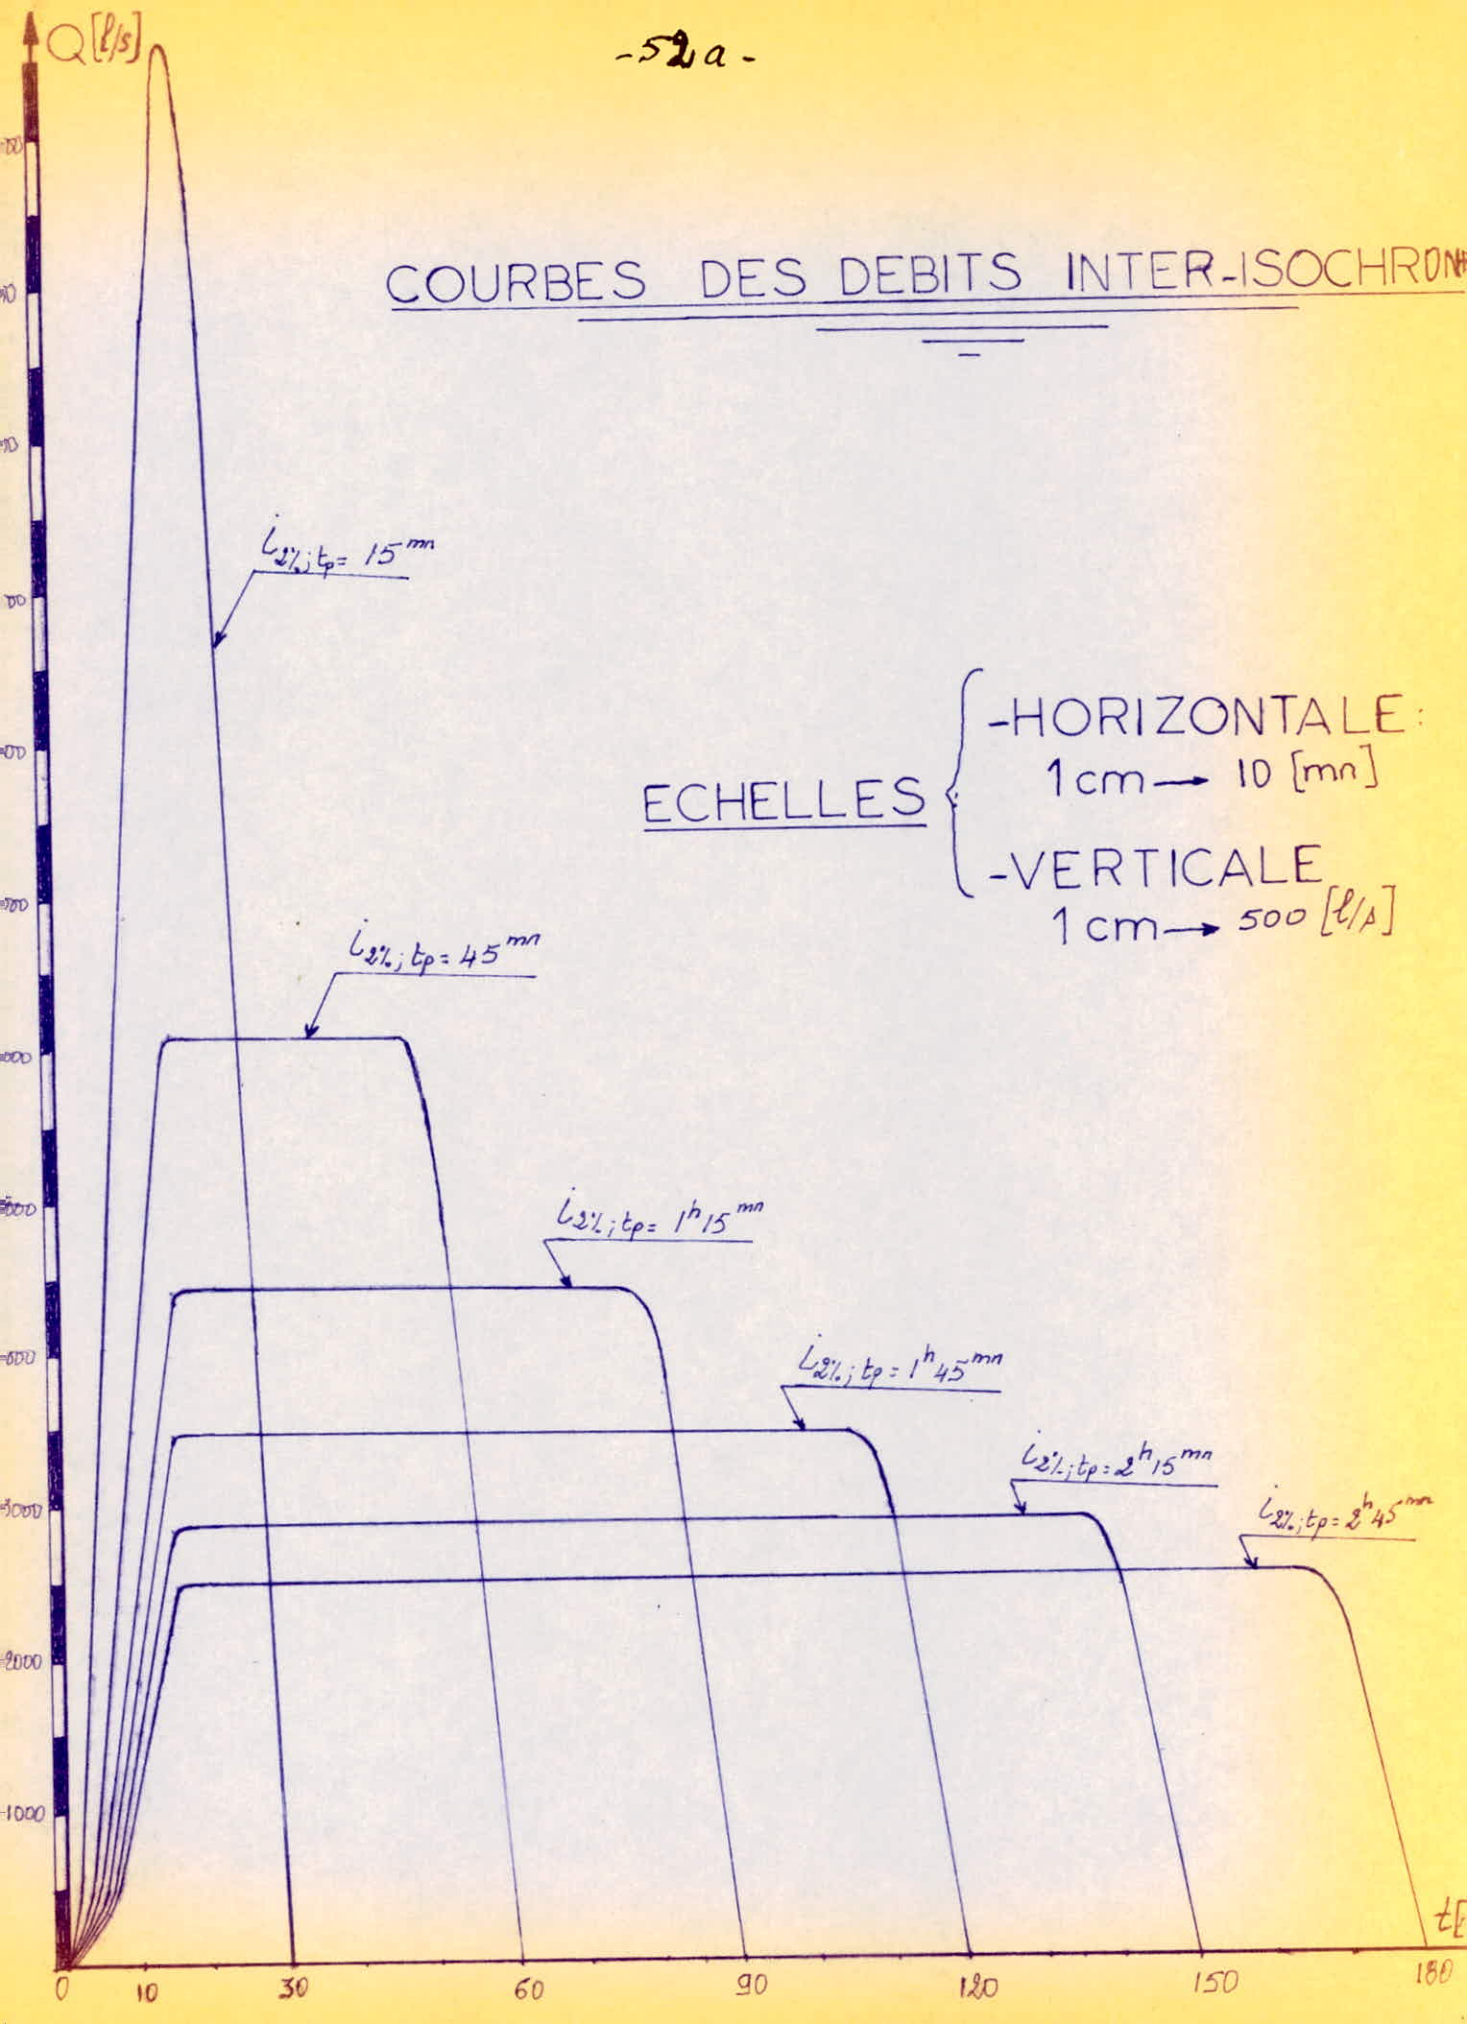 Q[l/s]
-52a-
COURBES DES DEBITS INTER-ISOCHRON
i2%; tp= 15mn
ECHELLES
-HORIZONTALE:
1 cm → 10 [mn]
-VERTICALE
1 cm → 500 [l/s]
i2%; tp= 45mn
i2%; tp= 1h15mn
i2%; tp= 1h45mn
i2%; tp= 2h15mn
i2%; tp= 2h45mn
3000
2000
1000
t[
0 10 30 60 90 120 150 180